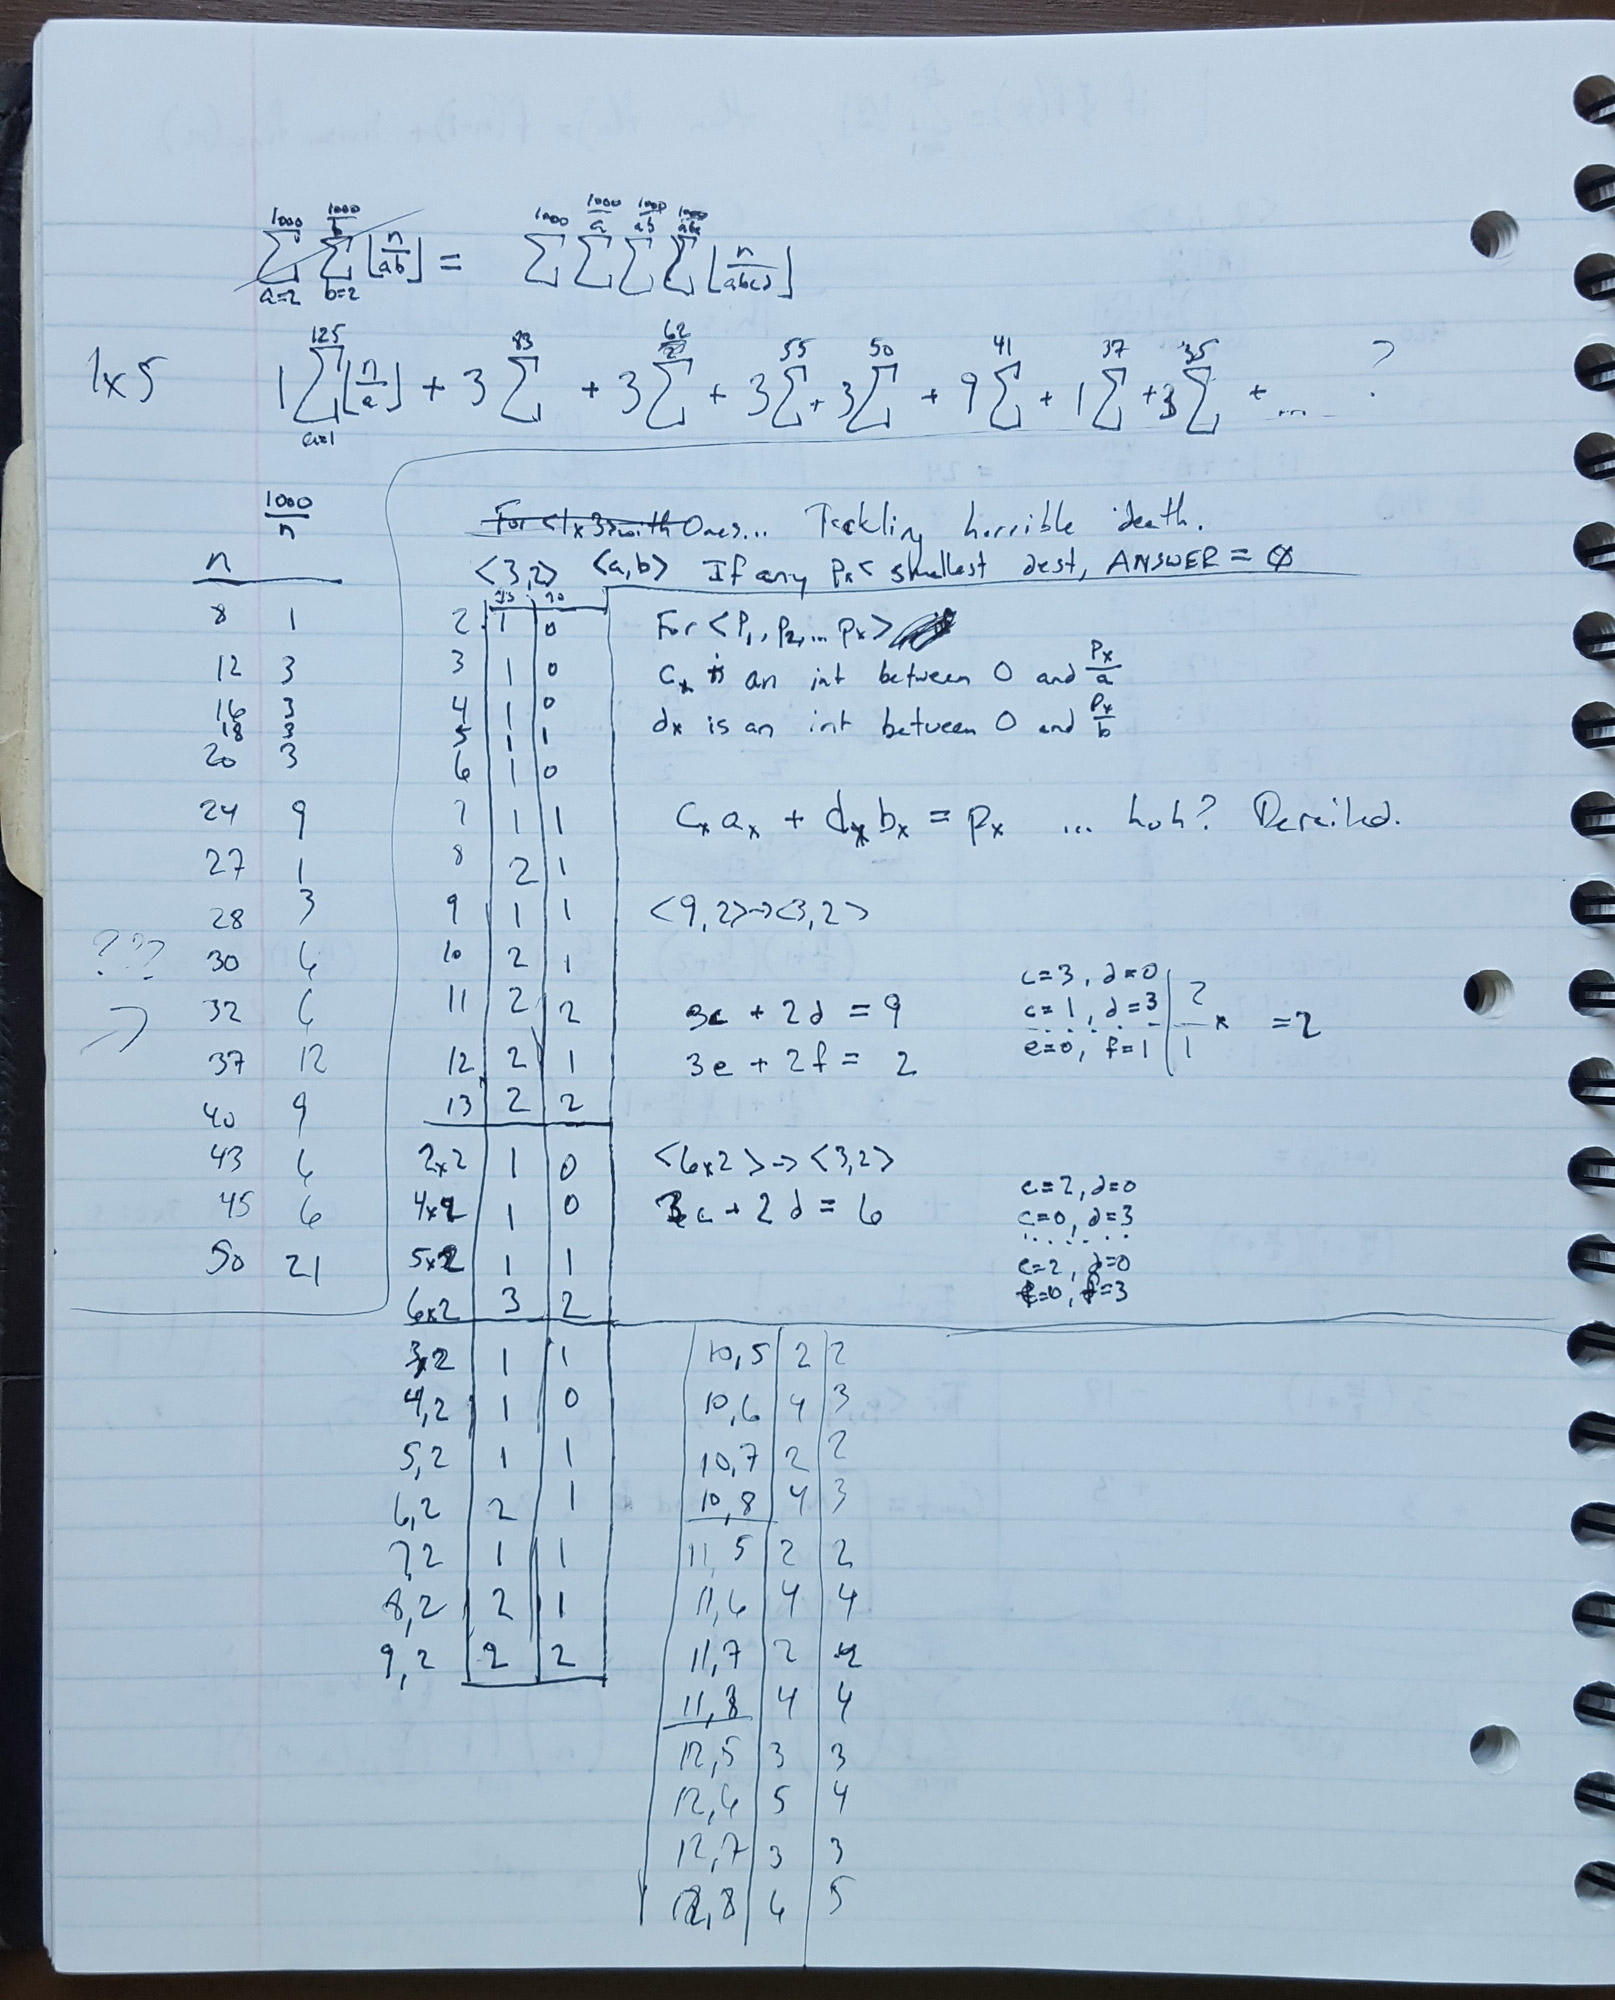 1000 1000/b 1000 1000/a 1000/ab 1000/abc
∑ ∑ ⌊n/ab⌋ = ∑ ∑ ∑ ∑ ⌊n/abcd⌋
a=2 b=2
125 83 62 55 50 41 37 35
1x5 1∑⌊n/a⌋ + 3∑ + 3∑ + 3∑ + 3∑ + 9∑ + 1∑ + 3∑ + ... ?
a=1
n 1000/n
8 1
12 3
16 3
18 3
20 3
24 9
27 1
28 3
30 6
32 6
37 12
40 9
43 6
45 6
50 21
???
→
For <1x3> with Ones... Tackling horrible death.
<3,2> <a,b> If any Px < smallest dest, ANSWER = Ø
2 1 0
3 1 0
4 1 0
5 1 1
6 1 0
7 1 1
8 2 1
9 1 1
10 2 1
11 2 2
12 2 1
13 2 2
2x2 1 0
4x2 1 0
5x2 1 1
6x2 3 2
3,2 1 1
4,2 1 0
5,2 1 1
6,2 2 1
7,2 1 1
8,2 2 1
9,2 2 2
For <P1, P2, ... Px>
Cx is an int between 0 and Px/a
dx is an int between 0 and Px/b
Cx ax + dx bx = Px ... huh? Derailed.
<9,2> → <3,2>
3c + 2d = 9
3e + 2f = 2
c=3, d=0
c=1, d=3 2
e=0, f=1 1 x = 2
<6x2> → <3,2>
3c + 2d = 6
c=2, d=0
c=0, d=3
e=2, f=0
e=0, f=3
10,5 2 2
10,6 4 3
10,7 2 2
10,8 4 3
11,5 2 2
11,6 4 4
11,7 2 2
11,8 4 4
12,5 3 3
12,6 5 4
12,7 3 3
12,8 6 5